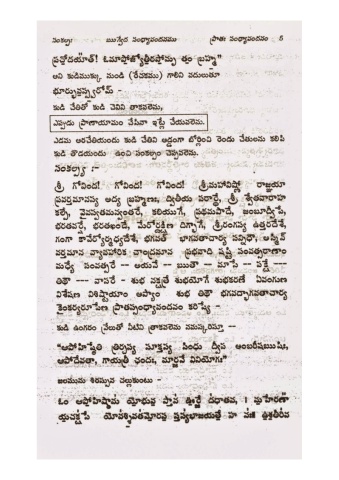 సంకల్పః ఋగ్వేద సంధ్యావందనము ప్రాతః సంధ్యావందనం 5
ప్రచోదయాత్ ఓమాపోజ్యోతీరసోమృతం బ్రహ్మ"
అని కుడిముక్కు నుండి (రేచకము) గాలిని వదులుతూ
భూర్భువస్స్వరోమ్ -
కుడి చేతితో కుడి చెవిని తాకవలెను.
ఎప్పుడు ప్రాణాయామం చేసినా ఇట్లే చేయవలెను.
ఎడమ అరచేతియందు కుడి చేతిని అడ్డంగా బోర్లించి రెండు చేతులను కలిపి
కుడి తొడయందు ఉంచి సంకల్పం చెప్పవలెను.
సంకల్పః :-
శ్రీ గోవింద! గోవింద! గోవింద! శ్రీమహావిష్ణో రాజ్ఞయా
ప్రవర్తమానస్య అద్య బ్రహ్మణః ద్వితీయ పరార్థే, శ్రీ శ్వేతవారాహ
కల్పే, వైవస్వతమన్వంతరే, కలియుగే, ప్రథమపాదే, జంబూద్వీపే,
భరతవర్షే, భరతఖండే, మేరోర్దక్షిణ దిగ్భాగే, శ్రీరంగస్య ఉత్తరదేశే,
గంగా కావేర్యోర్మధ్యదేశే, భగవత్ భాగవతాచార్య సన్నిధౌ, అస్మిన్
వర్తమాన వ్యావహారిక చాంద్రమాన ప్రభవాది షష్టి సంవత్సరాణాం
మధ్యే సంవత్సరే -- అయనే -- ఋతౌ -- మాసే -- పక్షే --
తిథౌ --- వాసరే - శుభ నక్షత్రే శుభయోగే శుభకరణే ఏవంగుణ
విశేషణ విశిష్టాయాం అస్యాం శుభ తిథౌ భగవద్భాగవతాచార్య
కైంకర్యరూపేణ ప్రాతస్సంధ్యావందనం కరిష్యే
కుడి ఉంగరం వ్రేలుతో నీటిని తాకవలెను నమస్కరిస్తూ --
"ఆపోహిష్ఠేతి త్రిర్చస్య సూక్తస్య సింధు ద్వీప అంబరీషఋషిః,
ఆపోదేవతా, గాయత్రీ ఛందః, మార్జనే వినియోగః"
జలమును శిరస్సున చల్లుకుంటూ -
ఓం ఆపోహిష్ఠామ యోభువః స్తాన ఊర్జే దధాతన, । మహేరణా
యచక్షసే యోవశ్శివతమోరసః స్తస్యభాజయతే హ నః ఉశతీరివ